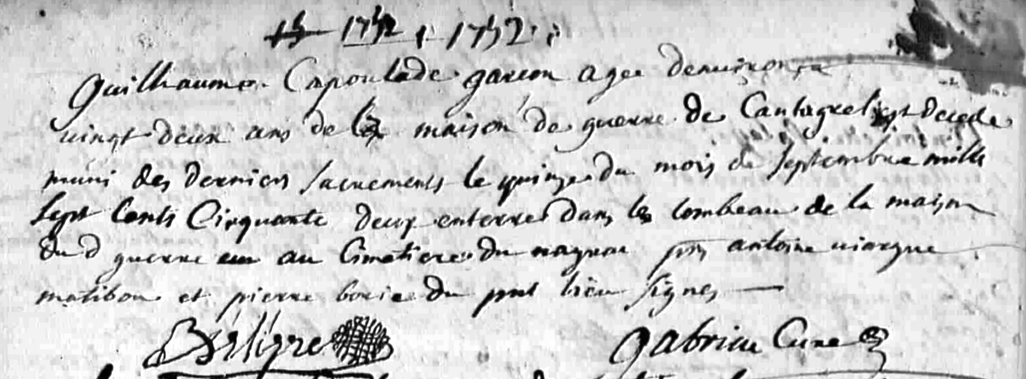 1752 1752
Guilhaume Capoulade garcon agee denuiron
vingt deux ans de la maison de guerre de Cantagrel est decede
muni des derniers sacrements le quinze du mois de septembre mille
sept cents cinquante deux enterre dans le tombeau de la maison
du d guerre au Cimetiere du nayrac pnt antoine viargue
matibou et pierre borie du pnt lieu signes
Gabriac Cure